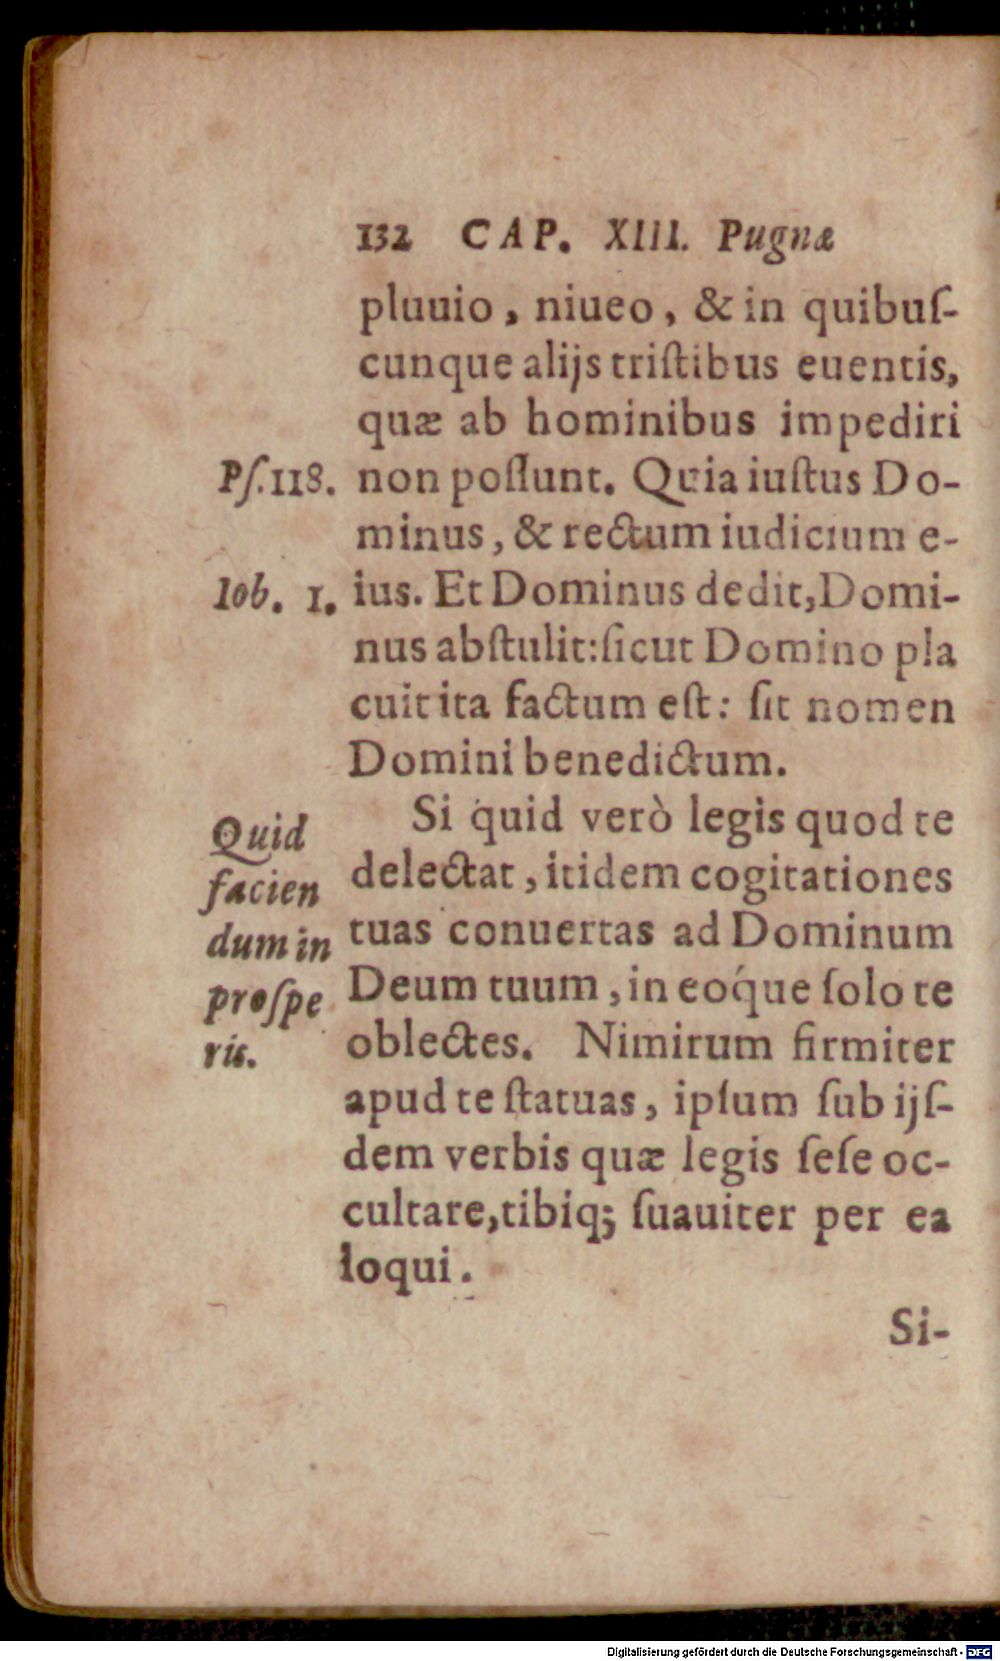 132 CAP. XIII. Pugnæ
pluuio, niueo, & in quibuſ-
cunque alijs triſtibus euentis,
quæ ab hominibus impediri
Pſ. 118.
non poſſunt. Quia iuſtus Do-
minus, & rectum iudicium e-
Iob. 1.
ius. Et Dominus dedit, Domi-
nus abſtulit: ſicut Domino pla
cuit ita factum eſt: ſit nomen
Domini benedictum.
Si quid verò legis quod te
Quid
facien
dum in
proſpe
ris.
delectat, itidem cogitationes
tuas conuertas ad Dominum
Deum tuum, in eoq́ue ſolo te
oblectes. Nimirum firmiter
apud te ſtatuas, ipſum ſub ijſ-
dem verbis quæ legis ſeſe oc-
cultare, tibiq; ſuauiter per ea
loqui.
Si-
Digitalisierung gefördert durch die Deutsche Forschungsgemeinschaft - DFG